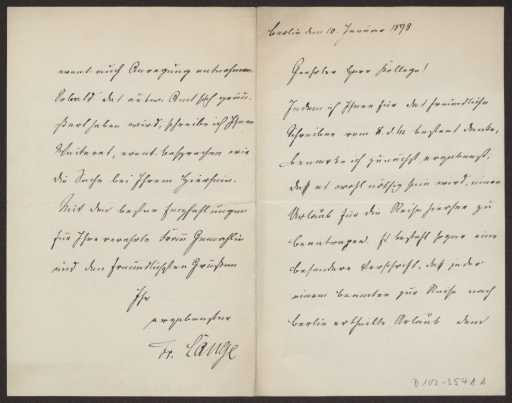 Berlin den 10. Januar 1898
Geehrter Herr Kollege!
Indem ich Ihnen für das freundliche
Schreiben vom 8. d. M. bestens danke,
bemerke ich zunächst ergebenst,
daß es wohl nöthig sein wird, einen
Urlaub für die Reise hierher zu
beantragen. Es besteht sogar eine
besondere Vorschrift, daß jeder
einem Beamten zur Reise nach
Berlin ertheilte Urlaub dem
event. auch Anregung entnehmen.
Sobald das Ausw. Amt sich geäu-
ßert haben wird, schreibe ich Ihnen
Weiteres, event. besprechen wir
die Sache bei Ihrem Hiersein.
Mit den besten Empfehlungen
für Ihre verehrte Frau Gemahlin
und den freundlichsten Grüßen
Ihr
ergebenster
Dr. Lange